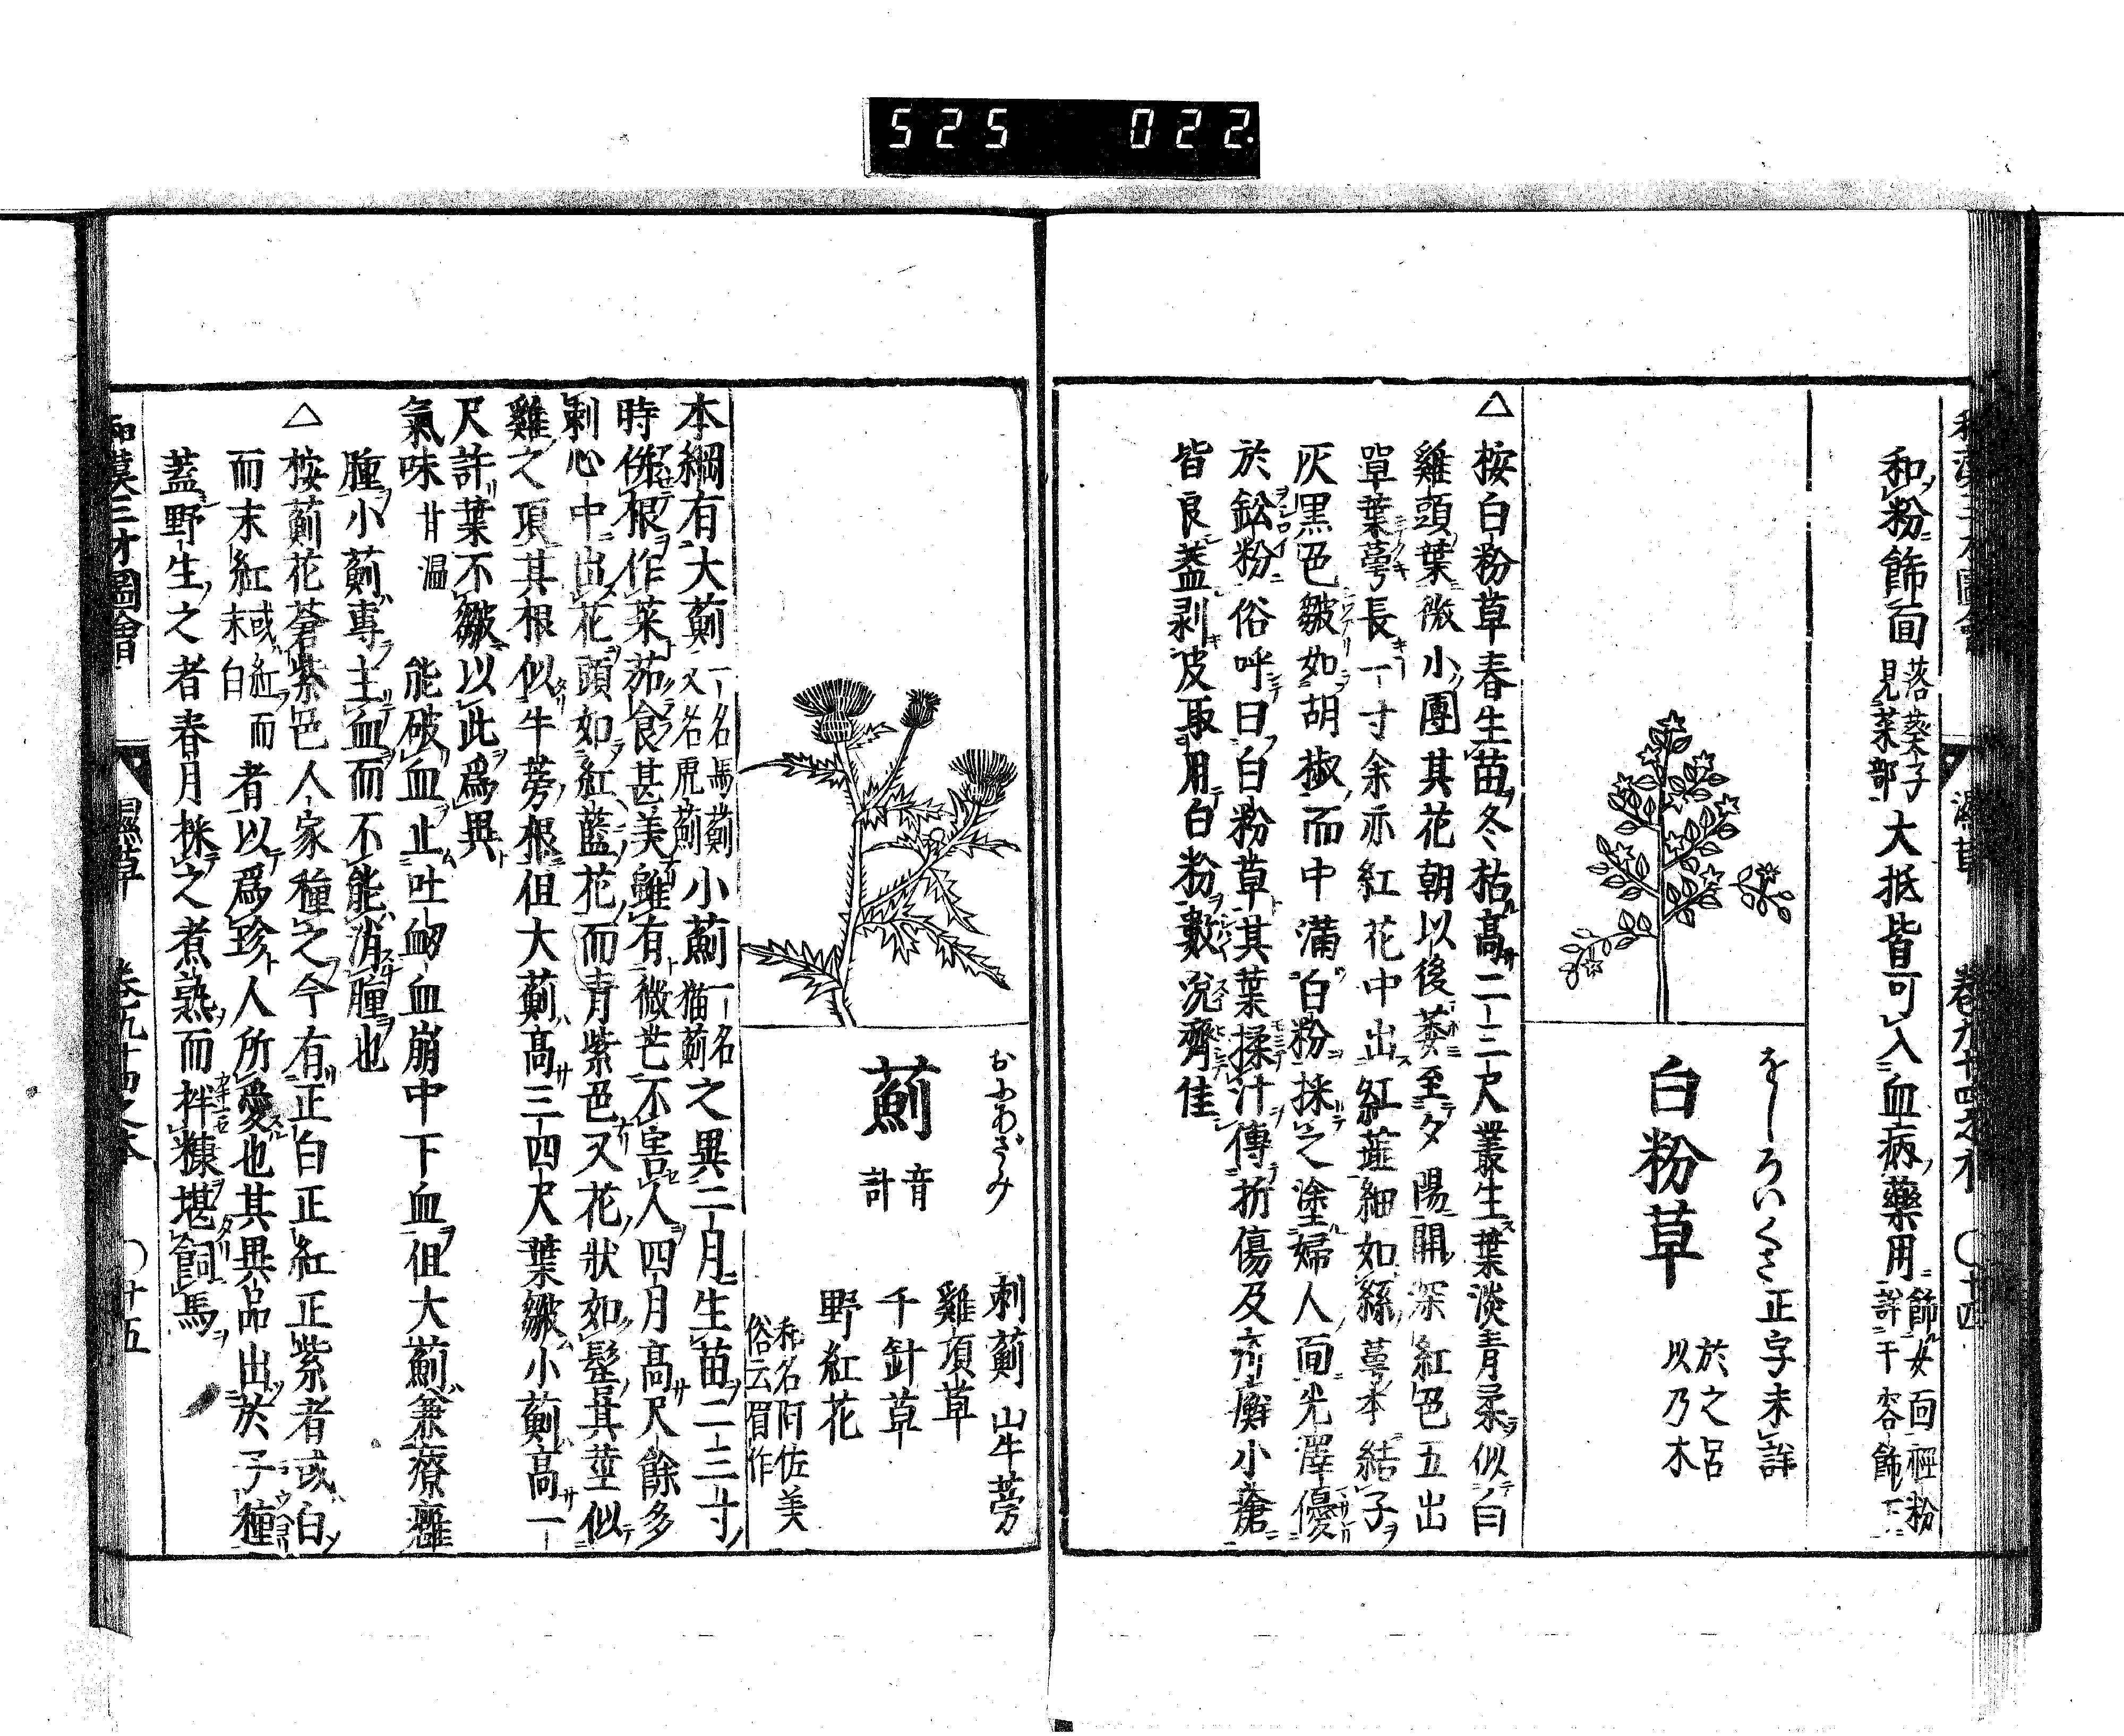 525 022
和粉飾面 落葵子見菜部 大抵皆可入血病藥用 飾女面輕粉詳于容飾下
をしろいくさ 正字未詳
白粉草
於之呂以乃木
△按白粉草春生苗冬枯高二三尺叢生葉淡青柔似白
雞頭葉微小團其花朝以後萎至夕陽開深紅色五出
單葉蕚長一寸余亦紅花中出紅蘂細如絲蕚本結子
灰黒色皺如胡椒而中滿白粉採之塗婦人面光澤優
於鉛粉俗呼曰白粉草其葉揉汁傳折傷及疥癬小瘡
皆良葢剥皮取用白粉數浣齊佳
おにあざみ
薊
音計
刺薊 山牛蒡
雞項草
千針草
野紅花
和名阿佐美
俗云眉作
本綱有大薊 一名馬薊又名虎薊 小薊 一名猫薊 之異二月生苗二三寸
時併根作菜茹食甚美雖有微芒不害人四月高尺餘多
刺心中出花頭如紅藍花而青紫色又花狀如髻其莖似
雞之項其根似牛蒡根但大薊高三四尺葉皺小薊高一
尺許葉不皺以此爲異
氣味 甘温 能破血止吐衂血崩中下血但大薊兼療癰
腫小薊專主血而不能消腫也
△按薊花蒼紫色人家種之今有正白正紅正紫者或白
而末紅或紅而末白者以爲珍人所愛也其異品出於子種
葢野生之者春月採之煮熟而拌糠堪飼馬
和漢三才圖會 濕草 卷九十四之本 〇十五